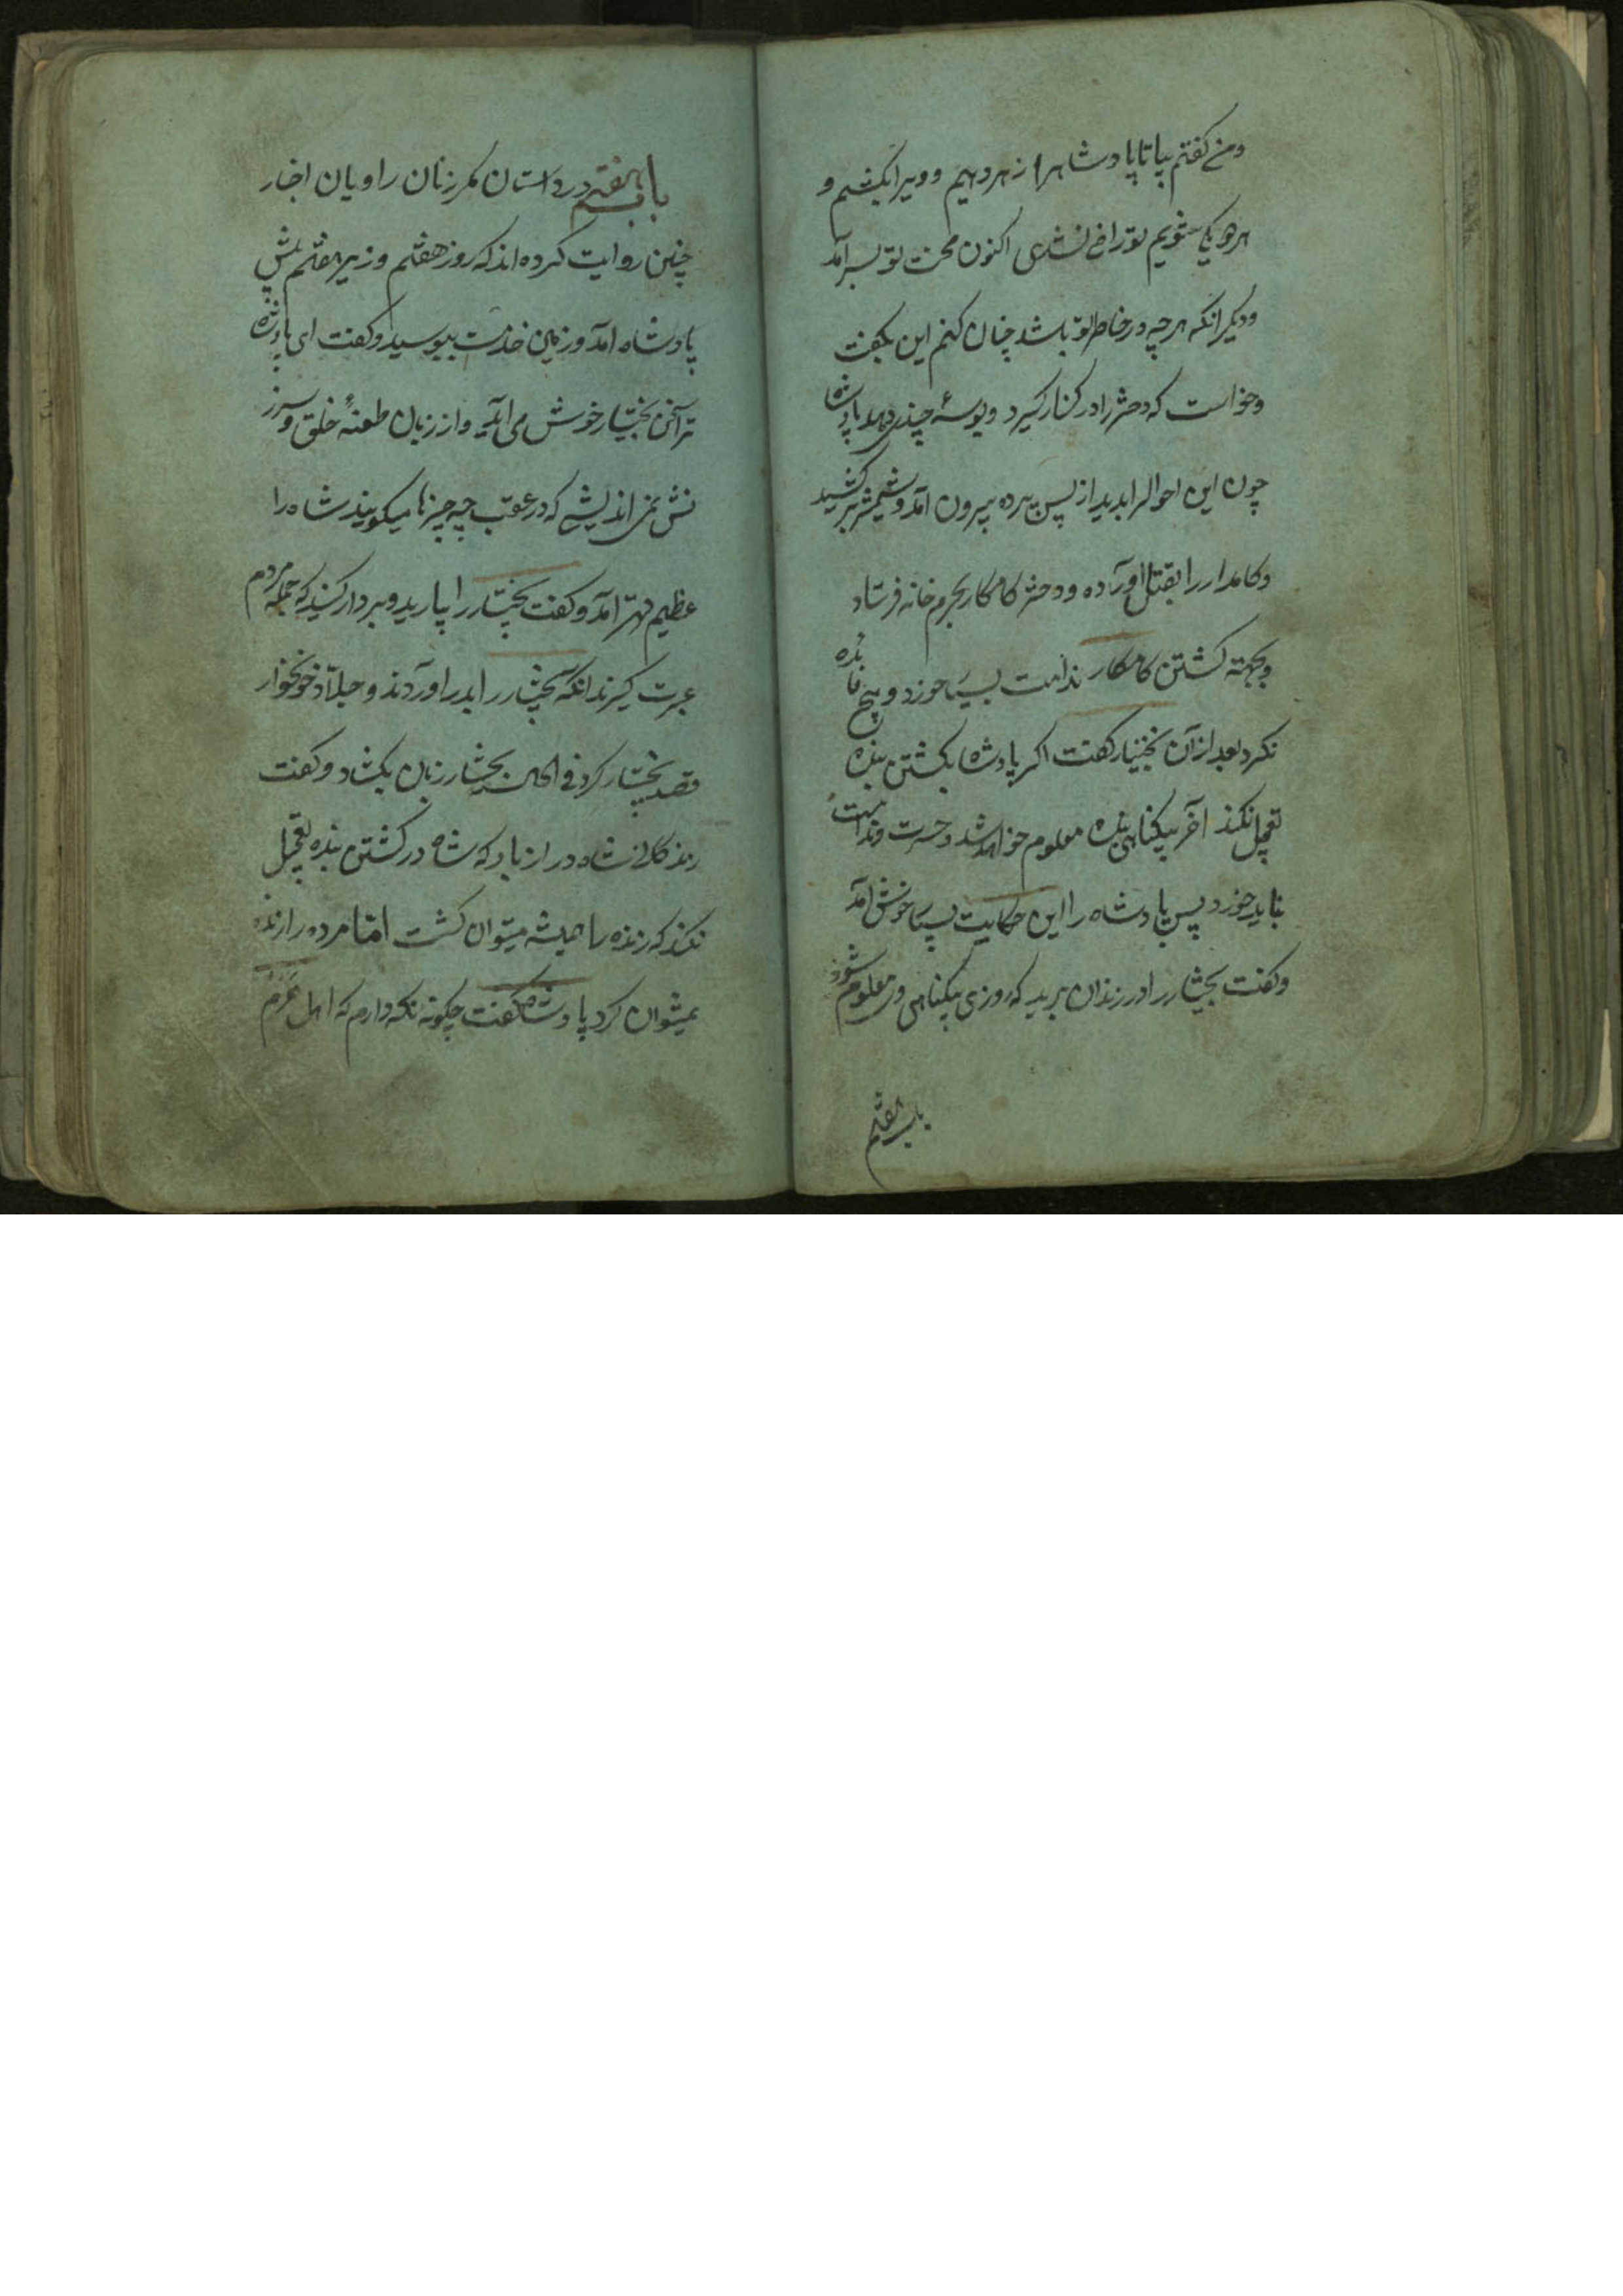 ومن گفتم بیا تا پادشاهرا زهر دهیم وویرا بکشیم و
هر دو یکی شویم تو راضی نشدی اکنون محنت تو بسر آمد
ودیگر انکه هر چه در خاطر تو باشد چنان کنم این بگفت
وخواست که دختر را در کنار گیرد وبوسهٔ چند پادشاه
چون این احوالرا بدید از پس پرده بیرون آمد وشمشیر بر کشید
وکامدار را بقتل اورده ودختر کامکار بحرم خانه فرستاد
وبجهته کشتن کامکار ندامت بسیار خورد وهیچ فایده
نکرد بعد از آن بختیار گفت اگر پادشاه بکشتن بنده
تعجیل نکند آخر بیگناهی بنده معلوم خواهد شد وحسرت وندامت
نباید خورد پس پادشاه را این حکایت بسیار خوش آمد
وگفت بختیار را در زندان برید که روزی بیگناهی وی معلوم شود
باب هفتم
باب هفتم در داستان مکر زنان راویان اخبار
چنین روایت کرده اند که روز هفتم وزیر هفتم پیش
پادشاه امد وزمین خدمت ببوسید وگفت ای پادشاه
ترا سخن بختیار خوش می آید واز زبان طعنهٔ خلق وسرز
نش نمی اندیشی که در عقب چه چیزها میگویند شاه را
عظیم قهر امد وگفت بختیار را بیارید وبر دار کنید که جمله مردم
عبرت گیرند انگه بختیار را بدر اوردند وجلاّد خونخوار
قصد بختیار کرد فی الحال بختیار زبان بگشاد وگفت
زندگانی شاه دراز باد که شاه در کشتن بنده تعجیل
نکند که زنده را همیشه میتوان کشت امّا مرده را زنده
نمیتوان کرد پادشاه گفت چگونه نگه دارم که اهل حرم